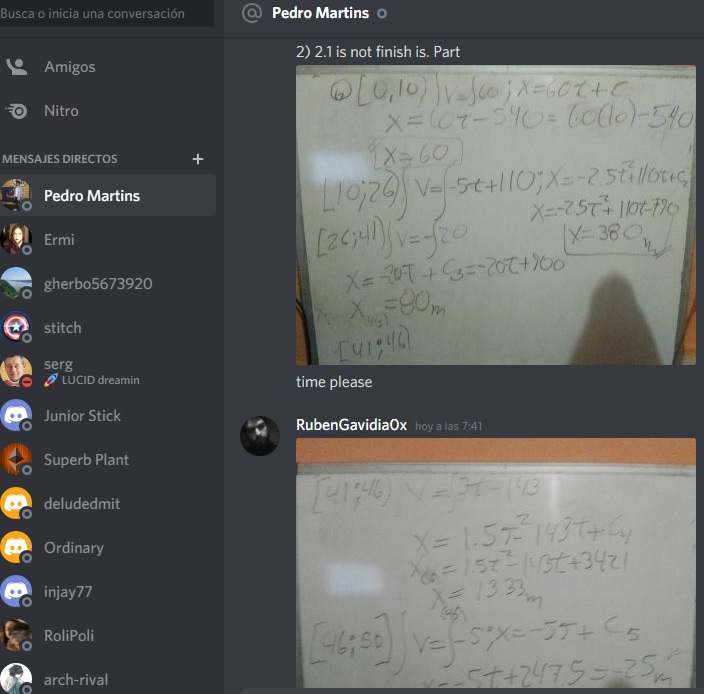 Busca o inicia una conversación
Amigos
Nitro
MENSAJES DIRECTOS +
Pedro Martins
Ermi
gherbo5673920
stitch
serg
🚀 LUCID dreamin
Junior Stick
Superb Plant
deludedmit
Ordinary
injay77
RoliPoli
arch-rival
@ Pedro Martins
2) 2.1 is not finish is. Part
[0,10) V=∫60; X=60t+C
X=60t-540=60(10)-540
X=60
[10;26) V=∫-5t+110; X=-2.5t²+110t+C₂
X=-2.5t²+110t-790
[26;41) V=-∫20
X=380
X=-20t+C₃=-20t+900
X =80m
[41;46)
time please
RubenGavidia0x hoy a las 7:41
[41;46) V=∫3t-143
X=1.5t²-143t+C₄
X =1.5t²-143t+3421
X =13.33m
(46)
[46;50] V=∫-5; X=-5t+C₅
X=-5t+247.5=-25m